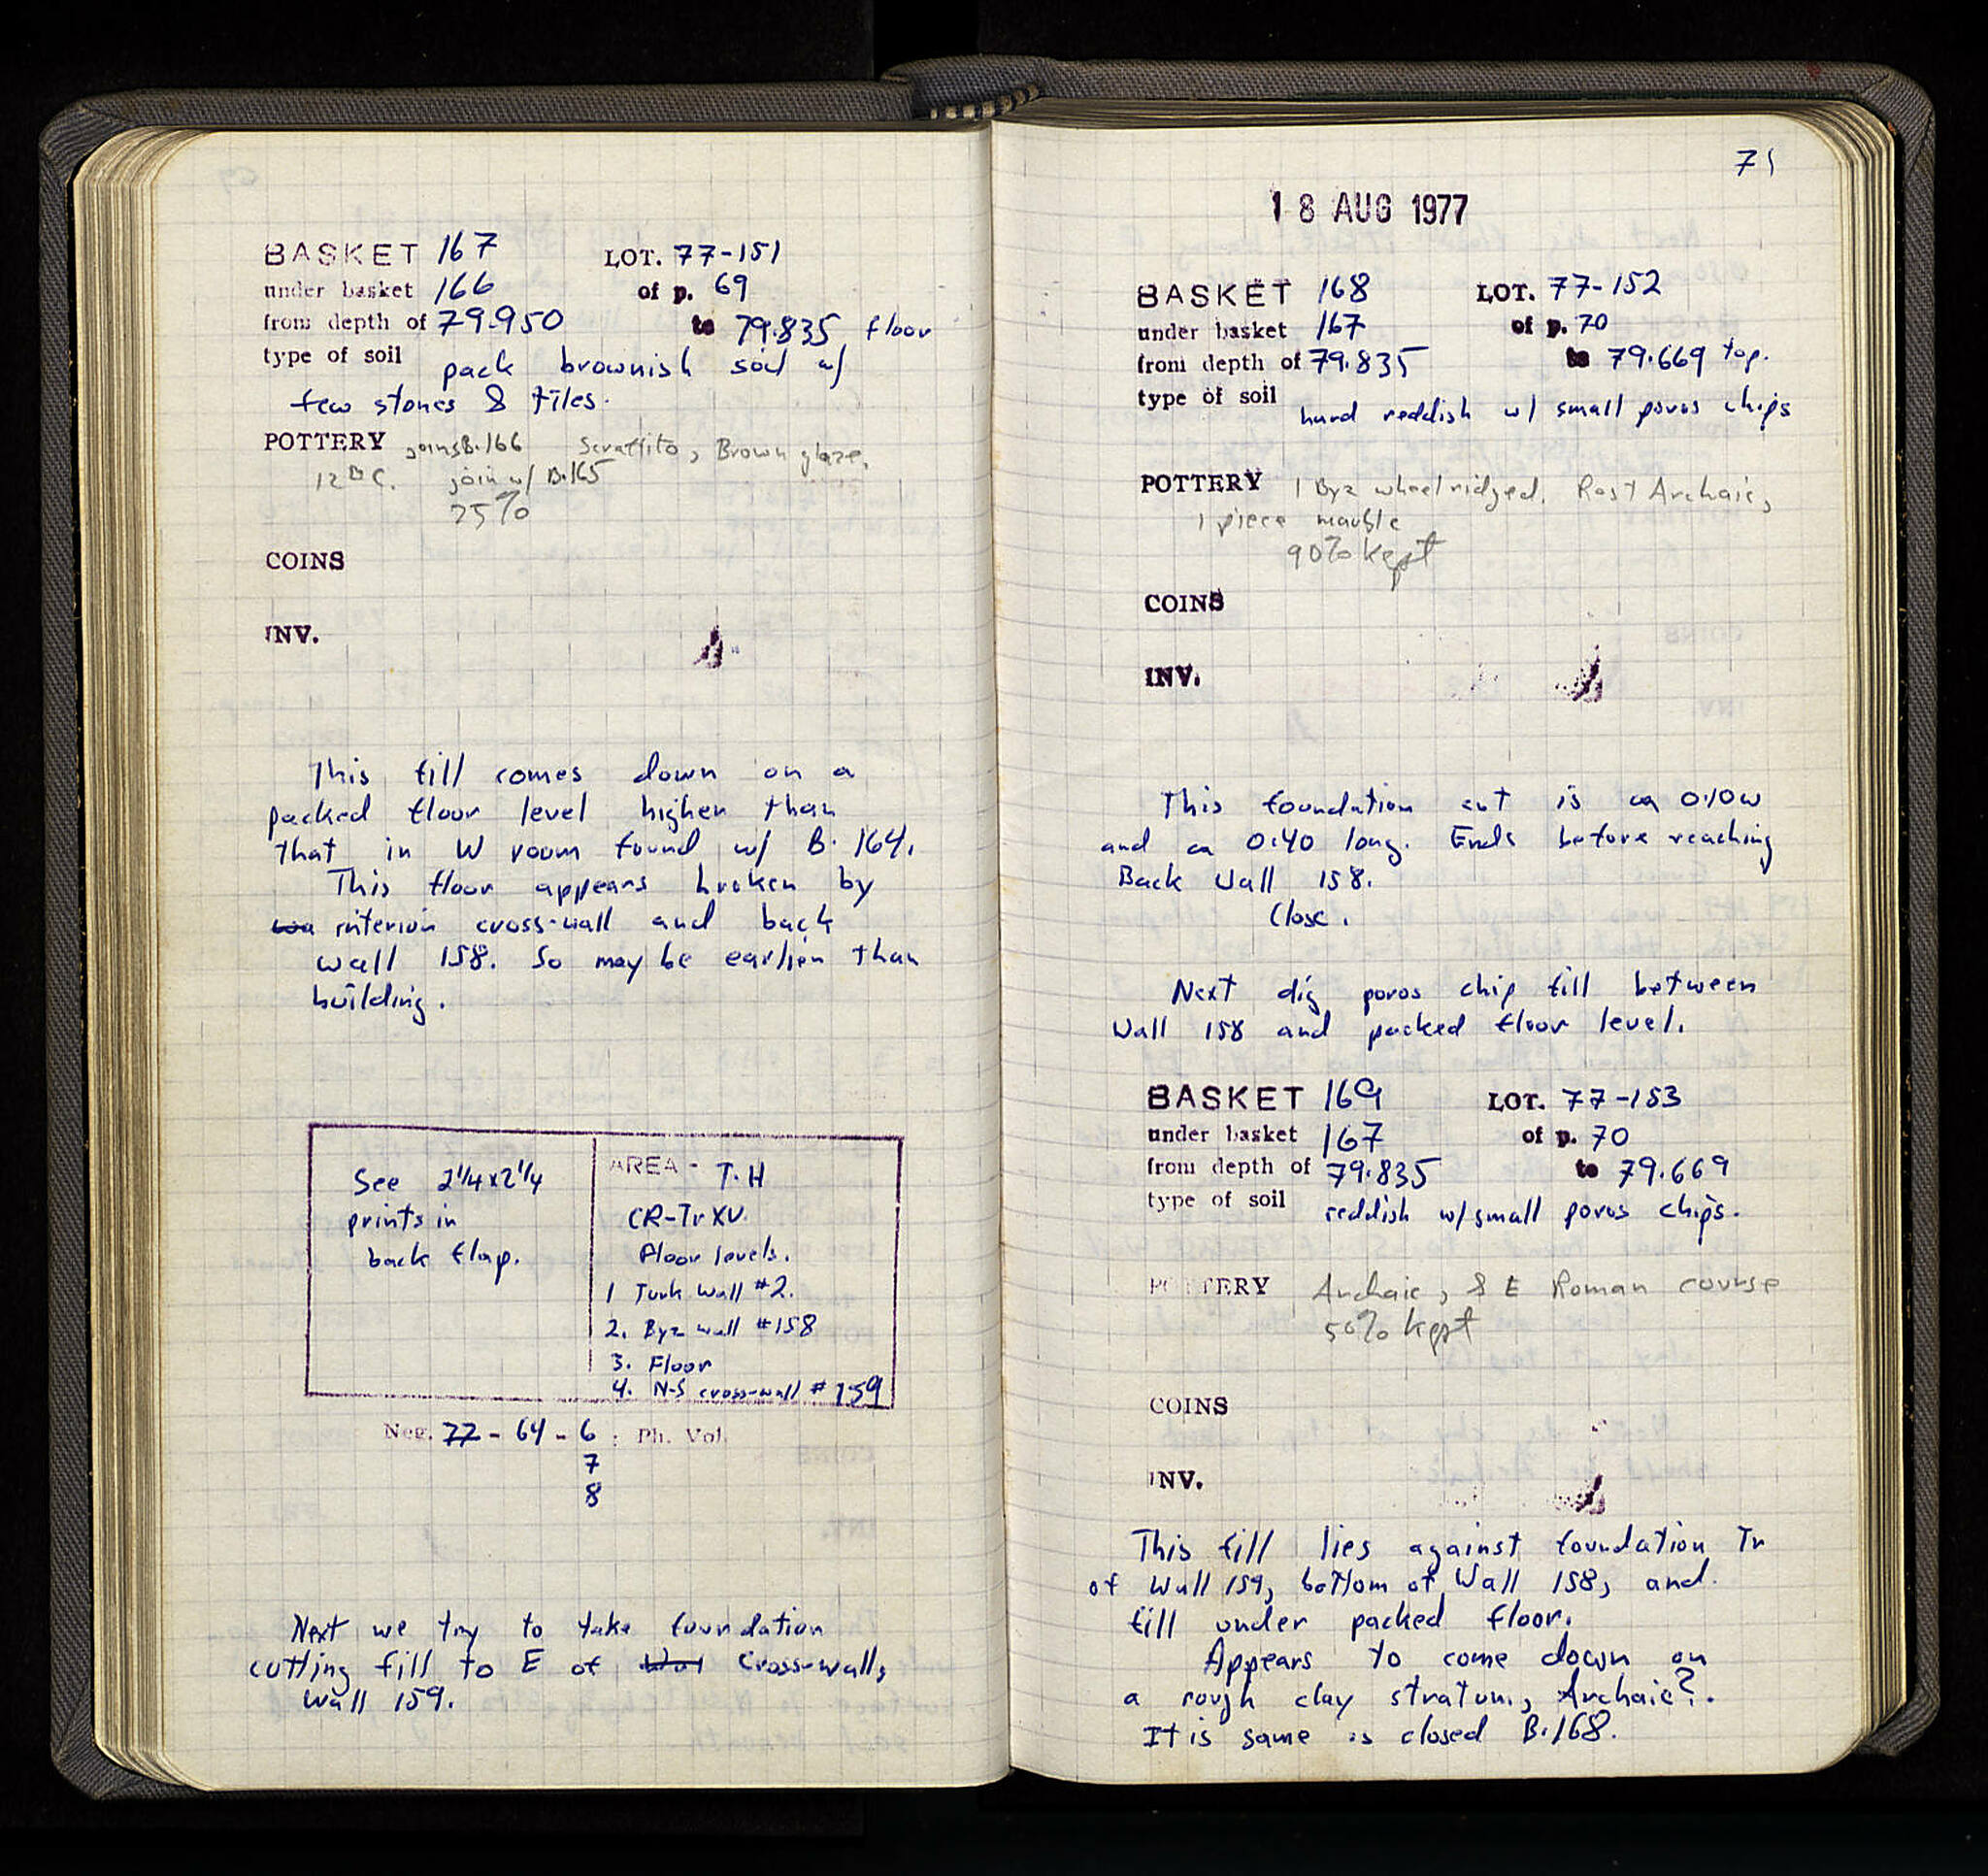 BASKET 167 LOT. 77-151
under basket 166 of p. 69
from depth of 79.950 to 79.835 floor
type of soil pack brownish soil w/
few stones & tiles.
POTTERY joins B.166 Scraffito, Brown glaze,
12th C. join w/ B.165
75%
COINS
INV.
This fill comes down on a
packed floor level higher than
that in W room found w/ B. 164.
This floor appears broken by
interior cross-wall and back
wall 158. So may be earlier than
building.
See 2 1/4 x 2 1/4
prints in
back flap.
AREA - T.H
CR-Tr XV.
Floor levels.
1 Turk wall #2.
2. Byz wall #158
3. Floor
4. N-S cross-wall #159
Neg. 77 - 64 - 6 ; Ph. Vol.
7
8
Next we try to take foundation
cutting fill to E of Cross-wall,
Wall 159.
71
18 AUG 1977
BASKET 168 LOT. 77-152
under basket 167 of p. 70
from depth of 79.835 to 79.669 top.
type of soil hard reddish w/ small poros chips
POTTERY 1 Byz wheel ridged. Rest Archaic,
1 piece marble
90% kept
COINS
INV.
This foundation cut is ca 0.10 w
and ca 0.40 long. Ends before reaching
Back Wall 158.
Close.
Next dig poros chip fill between
Wall 158 and packed floor level.
BASKET 169 LOT. 77-153
under basket 167 of p. 70
from depth of 79.835 to 79.669
type of soil reddish w/ small poros chips.
POTTERY Archaic, & E Roman course
50% kept
COINS
INV.
This fill lies against foundation Tr
of Wall 159, bottom of Wall 158, and
fill under packed floor.
Appears to come down on
a rough clay stratum, Archaic?.
It is same as closed B.168.